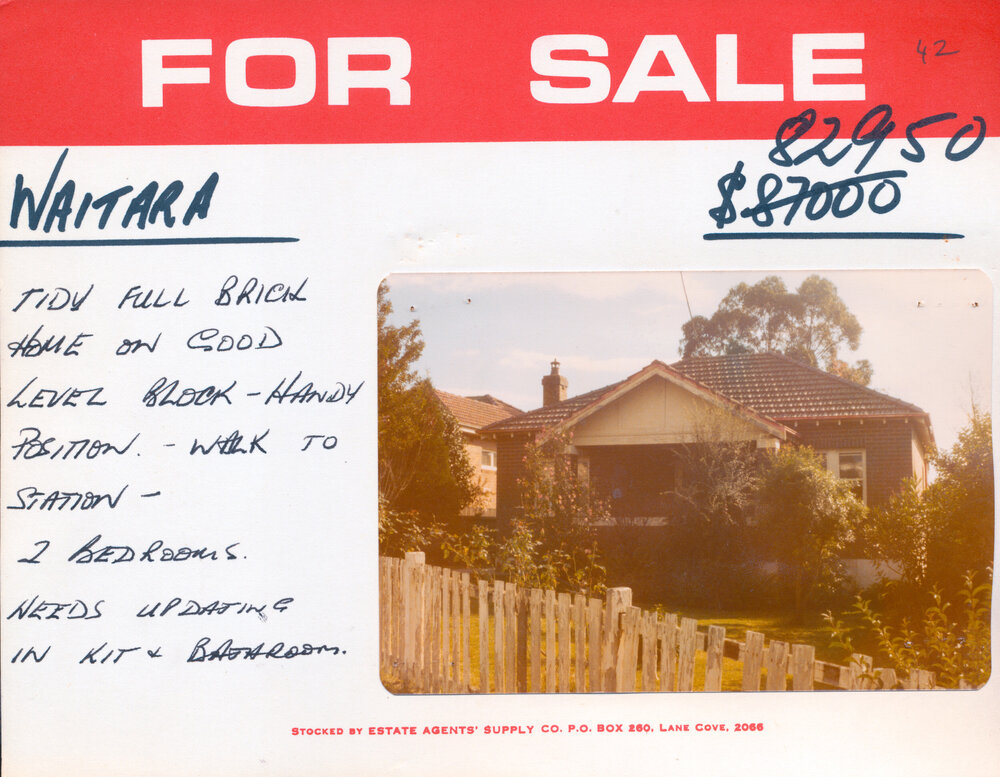 FOR SALE
42
82950
$87000
WAITARA
TIDY FULL BRICK
HOME ON GOOD
LEVEL BLOCK - HANDY
POSITION. - WALK TO
STATION -
2 BEDROOMS.
NEEDS UPDATING
IN KIT & BATHROOM.
STOCKED BY ESTATE AGENTS' SUPPLY CO. P.O. BOX 260, LANE COVE, 2066